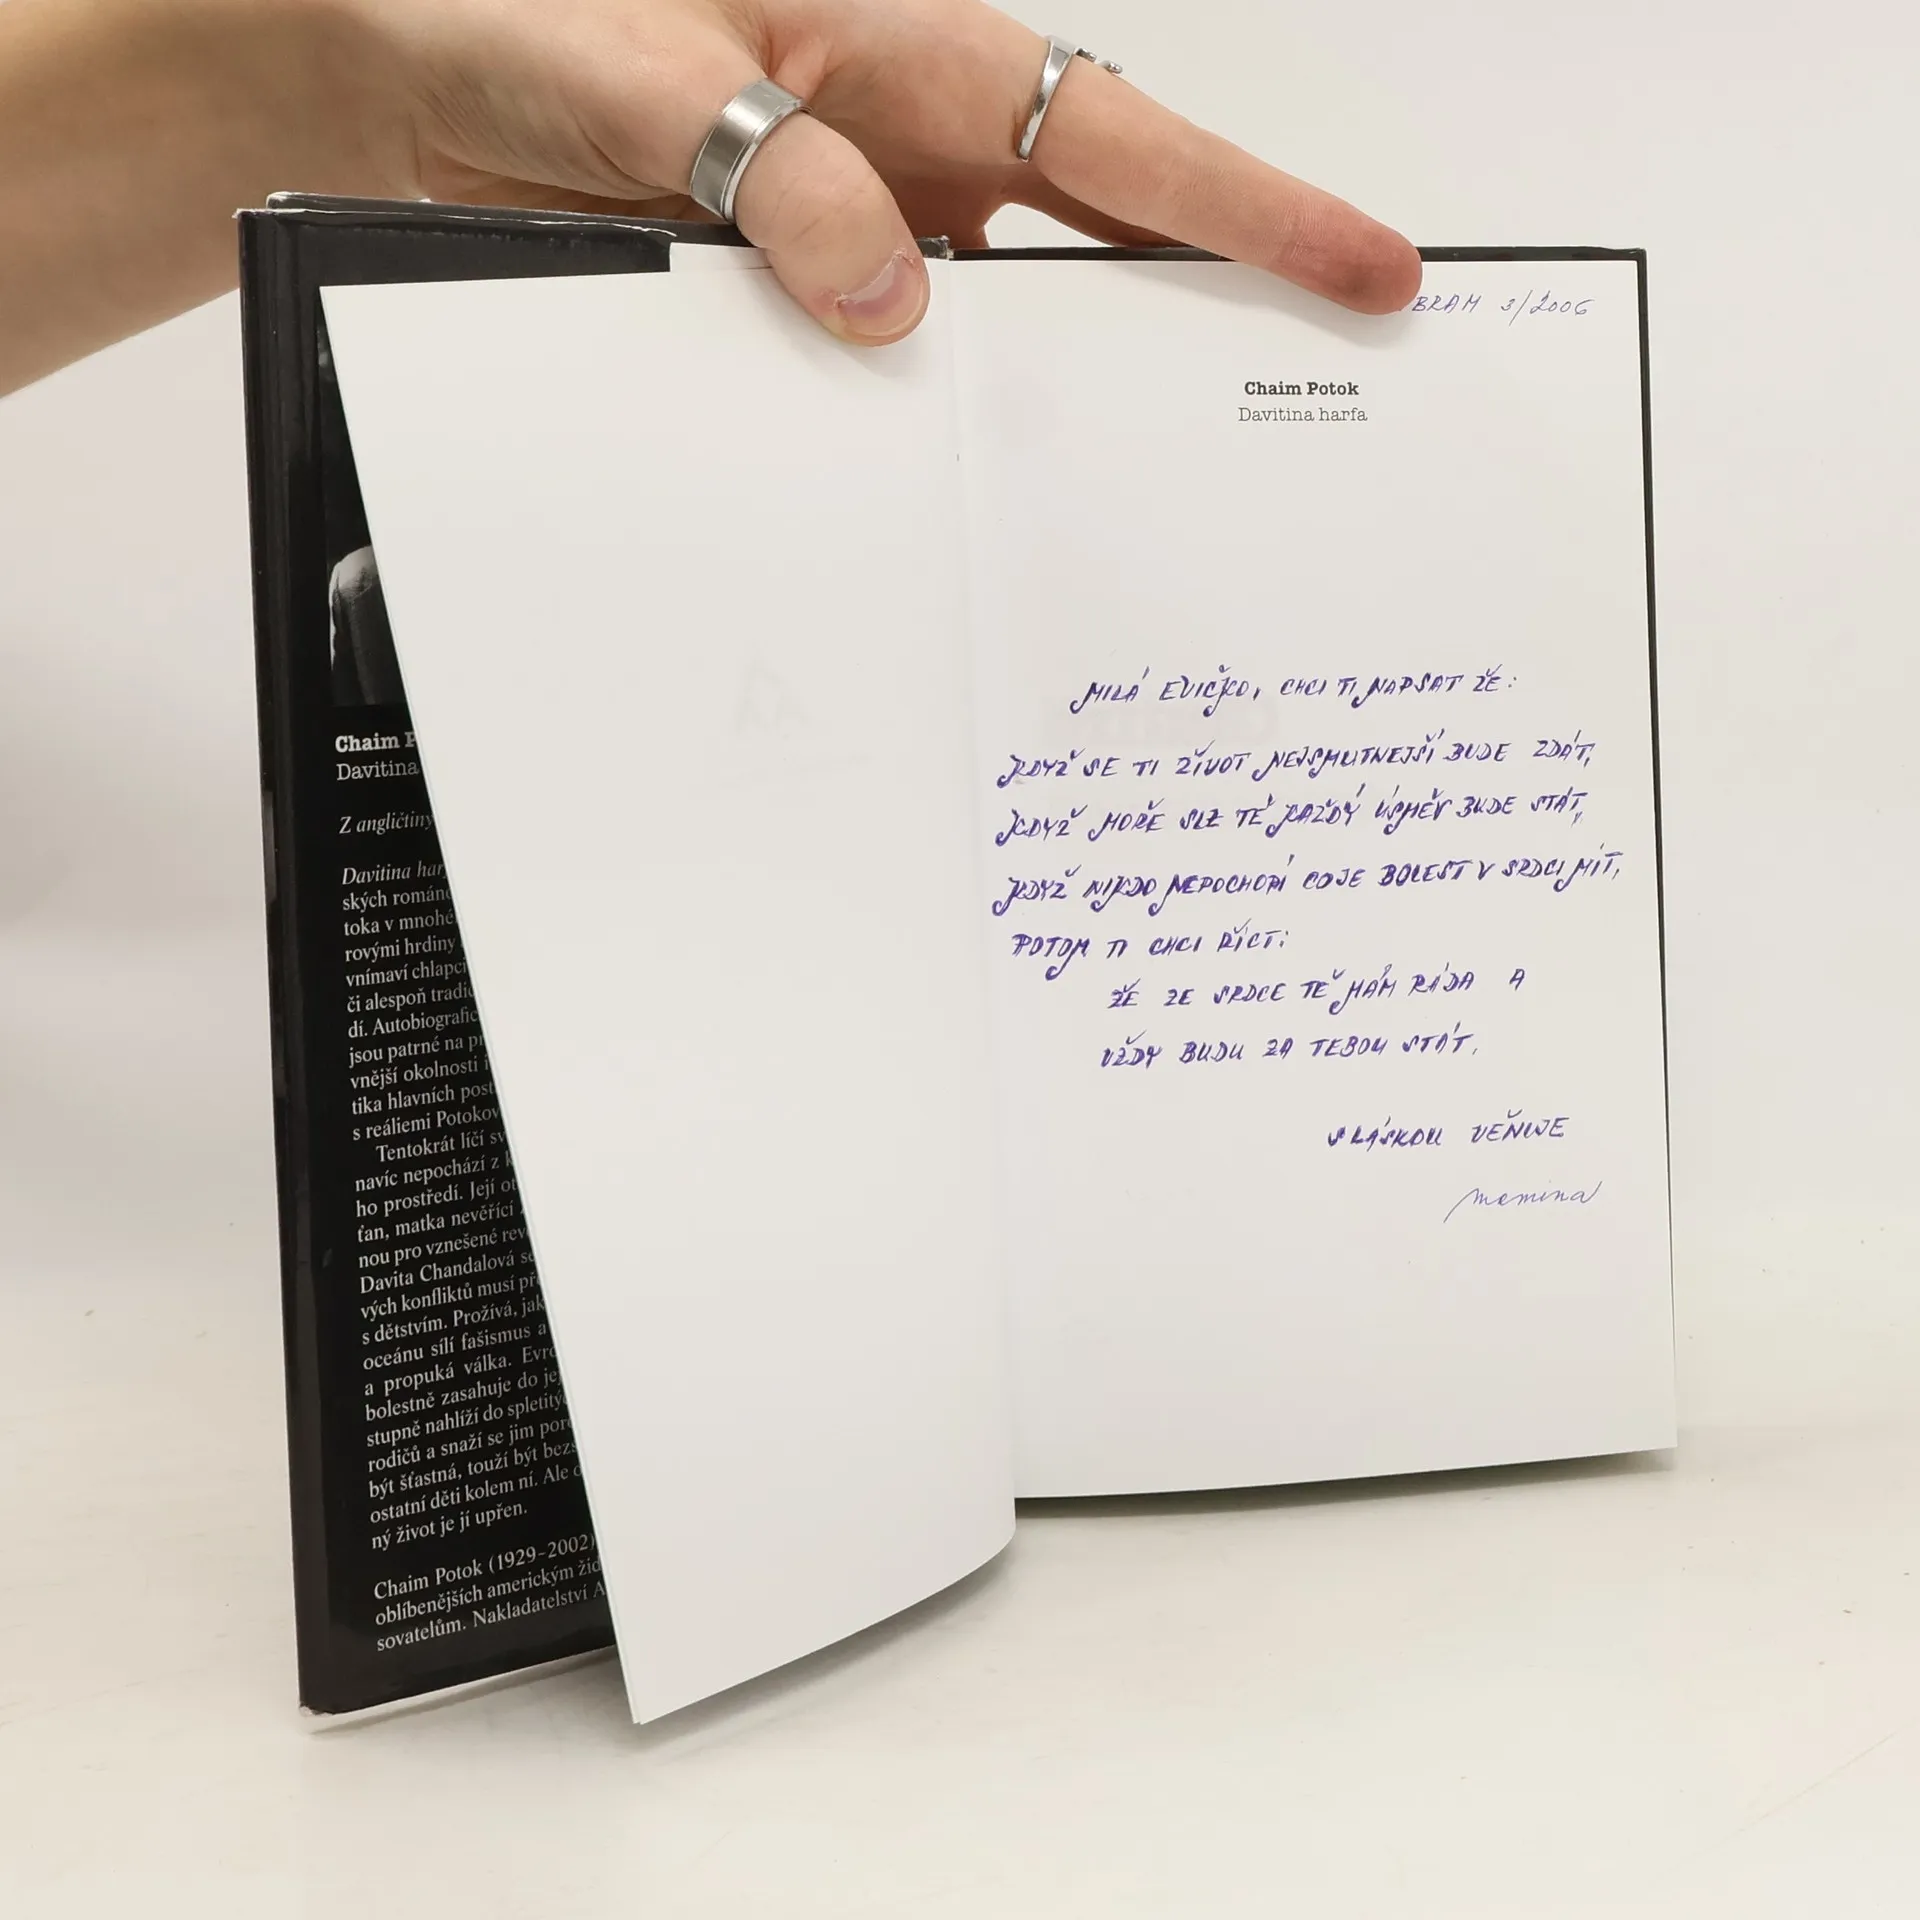 Chaim P
Davitina
Z angličtiny
Davitina har
ských románo
toka v mnohé
rovými hrdiny
vnímaví chlapci
či alespoň tradic
dí. Autobiografic
jsou patrné na pr
vnější okolnosti i
tika hlavních post
s reáliemi Potokov
Tentokrát líčí sv
navíc nepochází z k
ho prostředí. Její ot
ťan, matka nevěřící
nou pro vznešené rev
Davita Chandalová se
vých konfliktů musí př
s dětstvím. Prožívá, jak
oceánu sílí fašismus a
a propuká válka. Evro
bolestně zasahuje do jej
stupně nahlíží do spletitý
rodičů a snaží se jim poro
být šťastná, touží být bezs
ostatní děti kolem ní. Ale o
ný život je jí upřen.
Chaim Potok (1929–2002)
oblíbenějších americkým žid
sovatelům. Nakladatelství A
BRAM 3/2006
Chaim Potok
Davitina harfa
MILÁ EVIČKO, CHCI TI NAPSAT ŽE:
KDYŽ SE TI ŽIVOT NEJSMUTNEJŠÍ BUDE ZDÁT,
KDYŽ MOŘE SLZ TĚ KAŽDÝ ÚSMĚV BUDE STÁT,
KDYŽ NIKDO NEPOCHOPÍ CO JE BOLEST V SRDCI MÍT,
POTOM TI CHCI ŘÍCT:
ŽE ZE SRDCE TĚ MÁM RÁDA A
VŽDY BUDU ZA TEBOU STÁT.
S LÁSKOU VĚNUJE
mamina